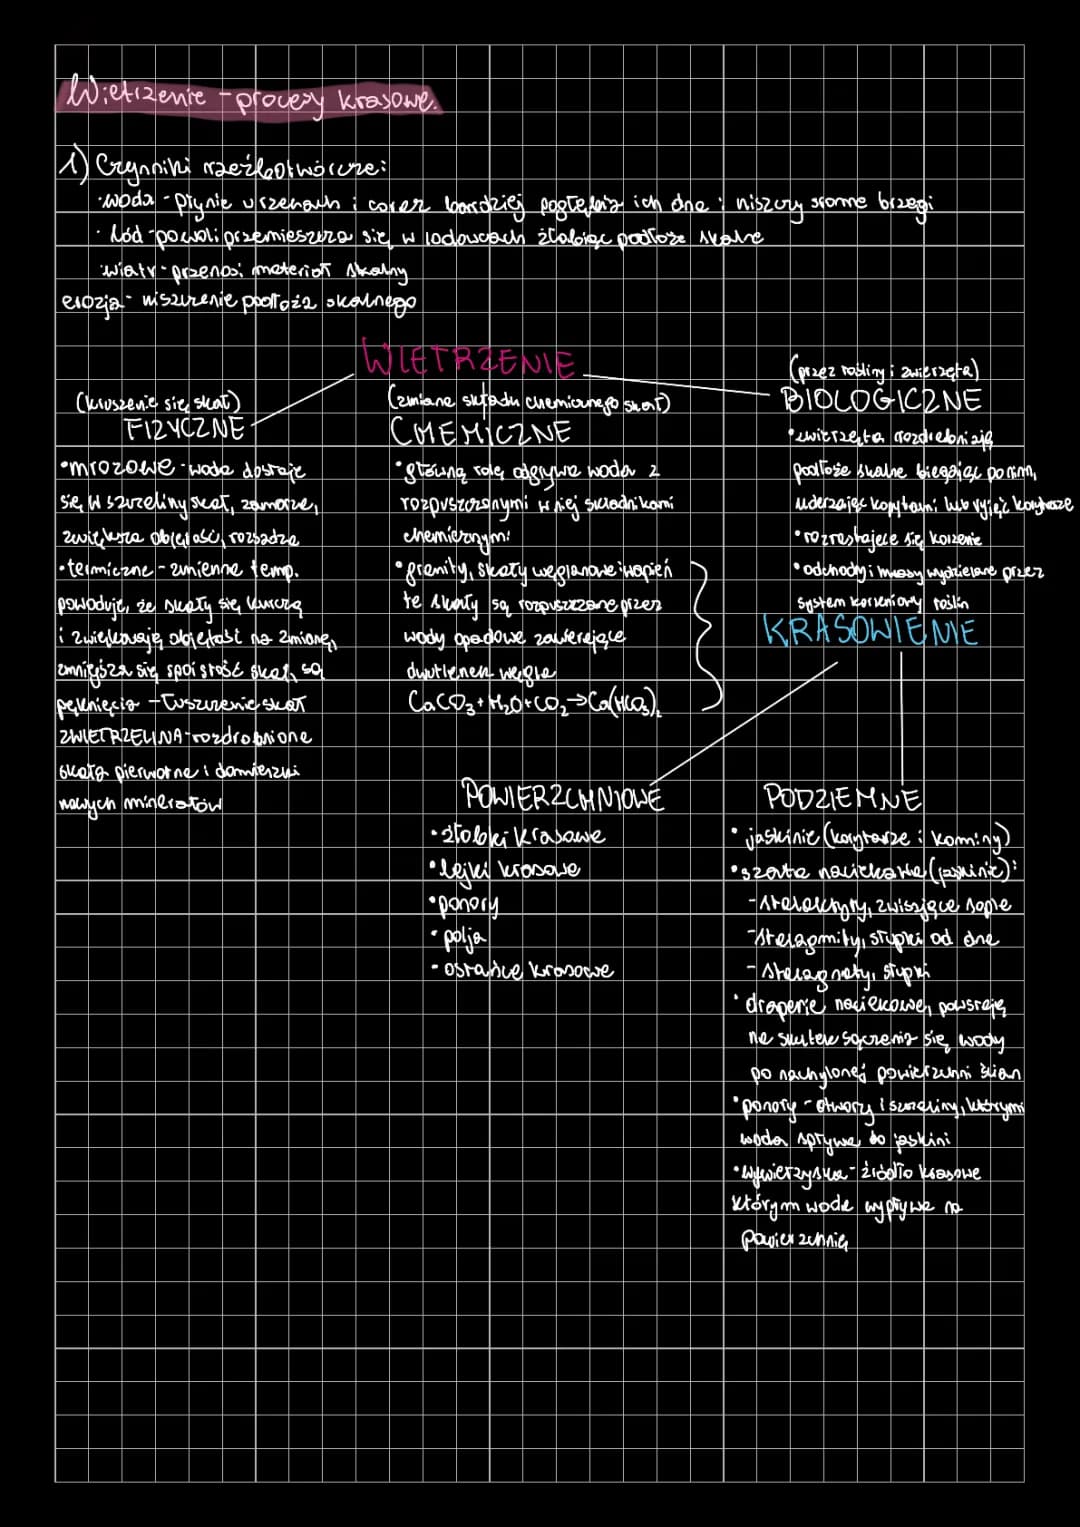 Wietrzenie - procesy krasowe.
1) Czynniki rzeźbotwórcze:
·woda - płynie w rzekach i coraz bardziej pogłębia ich dna i niszczy strome brzegi
·lód - powoli przemieszcza się w lodowcach żłobiąc podłoże skalne
·wiatr - przenosi materiał skalny
erozja - niszczenie podłoża skalnego
WIETRZENIE
(kruszenie się skał)
FIZYCZNE
•mrozowe - woda dostaje
się w szczeliny skał, zamarza,
zwiększa objętość, rozsadza
•termiczne - zmienna temp.
powoduje, że skały się kurczą
i zwiększają objętość na zmianę,
zmniejsza się spoistość skał, są
pęknięcia - łuszczenie skał
ZWIETRZELINA - rozdrobnione
skała pierwotna i domieszki
nowych minerałów
(zmiana składu chemicznego skał)
CHEMICZNE
•główną rolę odgrywa woda z
rozpuszczonymi w niej składnikami
chemicznymi
•granity, skały węglanowe i wapień
te skały są rozpuszczane przez
wody opadowe zawierające
dwutlenek węgla
CaCO₃+H₂O+CO₂→Ca(HCO₃)₂
(przez rośliny i zwierzęta)
BIOLOGICZNE
•zwierzęta rozdrabniają
podłoże skalne biegając po nim,
uderzając kopytami lub ryjąc korytarze
•rozrastające się korzenie
•odchody i kwasy wydzielane przez
system korzeniowy roślin
KRASOWIENIE
POWIERZCHNIOWE
•żłobki krasowe
•lejki krasowe
•ponory
•polja
•ostańce krasowe
PODZIEMNE
•jaskinie (korytarze i kominy)
•szata naciekowa (jaskinie):
-stalaktyty, zwisające sople
-stalagmity, słupki od dna
-stalagnaty, słupki
•draperie naciekowe, powstają
na skutek sączenia się wody
po nachylonej powierzchni ścian
•ponory - otwory i szczeliny, którymi
woda spływa do jaskini
•wywierzyska - źródło krasowe
którym woda wypływa na
powierzchnię